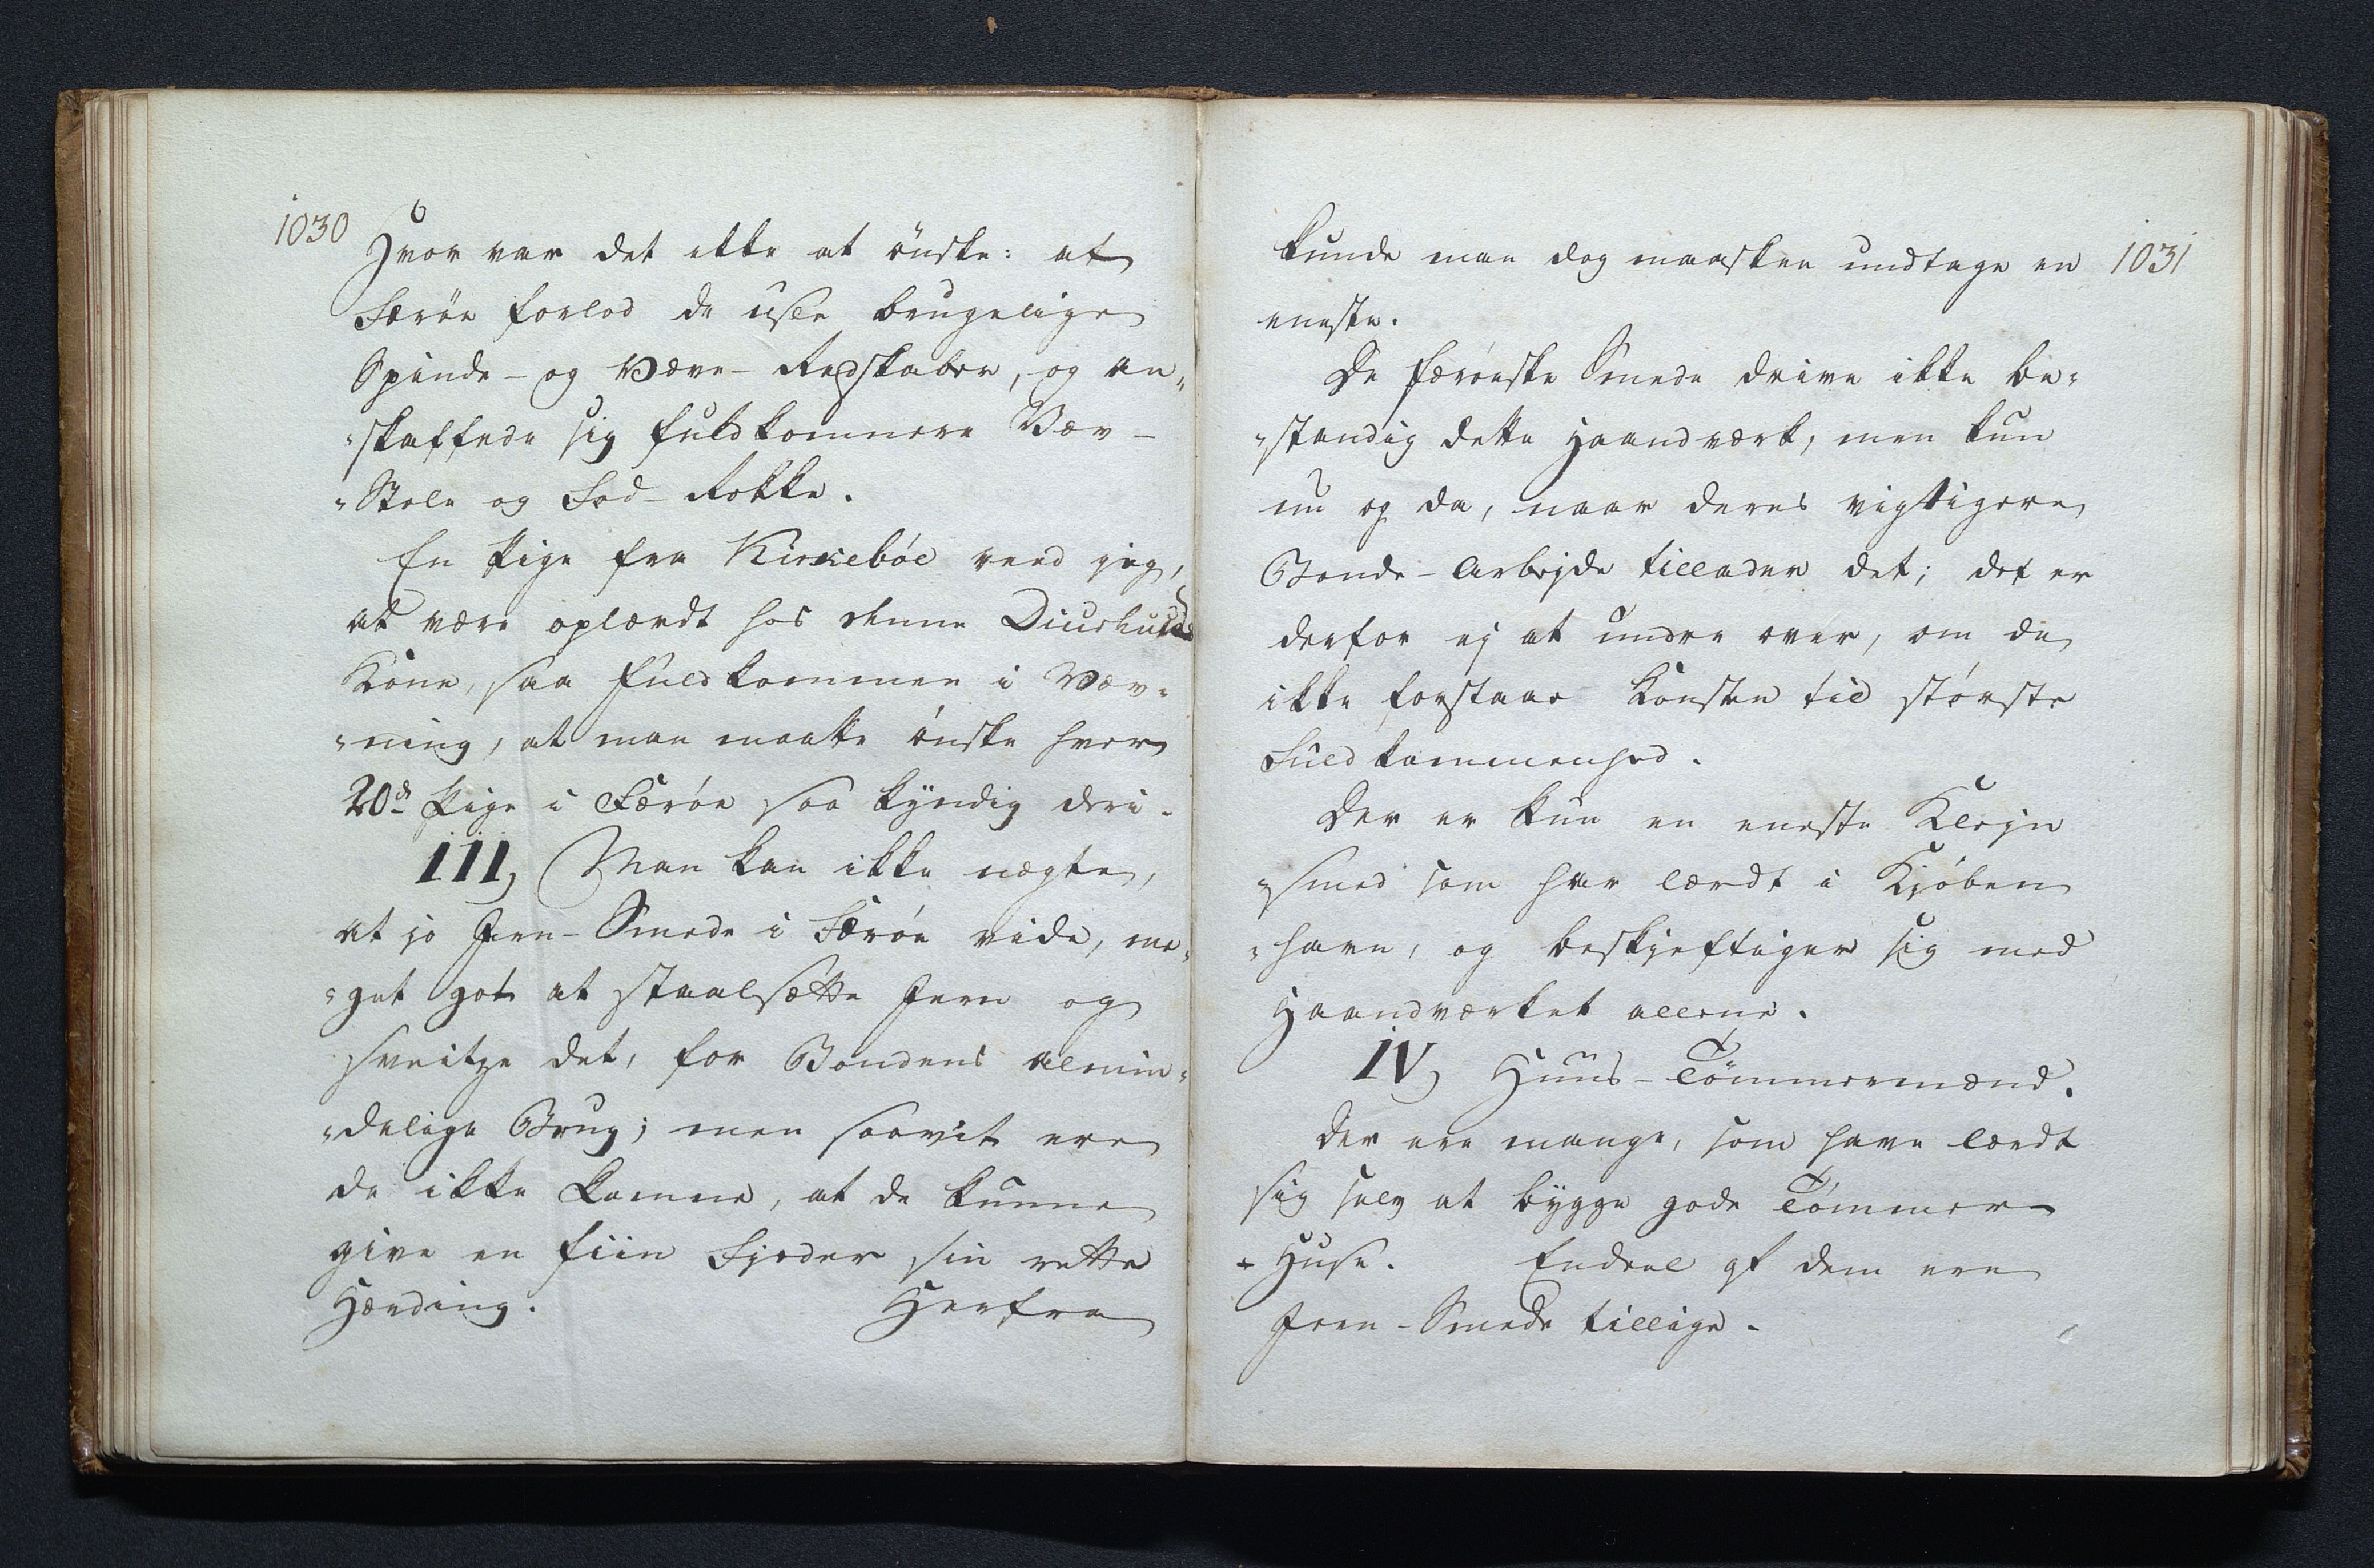 1030
Hvor var det ikke at ønske: at
Færøe forlod de usle brugelige
Spinde- og Væve-Redskaber, og an-
-skaffede sig fuldkomnere Væv-
-Stole og Fod-Rokke.
En Pige fra Kirkebøe veed jeg,
at være oplærdt hos denne Diurhuus
Kone, saa fuldkommen i Væv-
-ning, at man maatte ønske hver
20de Pige i Færøe saa kyndig deri.
III, Man kan ikke nægte,
at jo Jern-Smede i Færøe vide, me-
-get got at staalsætte Jern og
sveitze det, for Bondens almin-
-delige Brug; men saavit ere
de ikke komne, at de kunne
give en fiin Fjeder sin rette
Hærding.
Herfra
1031
kunde man dog maaskee undtage en
eneste.
De færøeske Smede drive ikke be-
-standig dette Haandværk, men kun
nu og da, naar deres vigtigere
Bonde-Arbejde tillader det; det er
derfor ej at undre over, om de
ikke forstaae Konsten til største
Fuldkommenhed.
Der er kun en eneste Klejn
-smed som har lærdt i Kjøben
-havn, og beskjeftiger sig med
Haandværket allene.
IV, Huus-Tømmermænd.
Der ere mange, som have lærdt
sig selv at bygge gode Tømmer-
-Huse. Endeel af dem ere
Jern-Smede tillige.